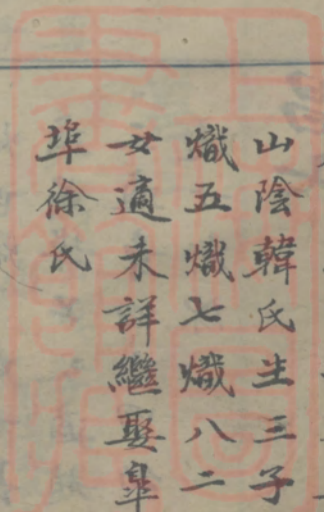 山陰韓氏生三子
熾五熾七熾八二
女適未詳繼娶皐
埠徐氏